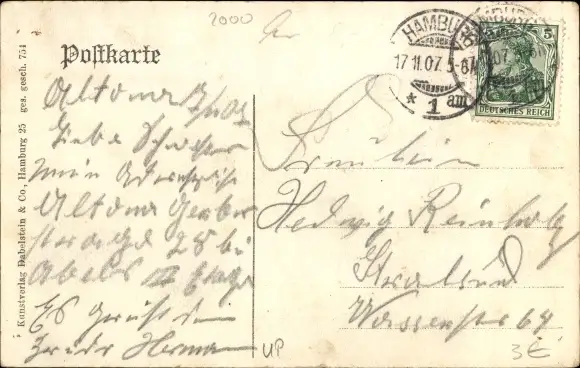 2000
Postkarte
Altona
Liebe Schwester
mein Adresse ist
Altona Gerber
strasse 28 bei
Abels III Etage
Es grüßt dein
Bruder Herman
Fräulein
Hedwig Reinholz
Stralsund
Wasserstr 64
HAMBURG
17.11.07. 5-6
* 1 am
5
DEUTSCHES REICH
Kunstverlag Dabelstein & Co., Hamburg 25 ges. gesch. 754
VP
3€